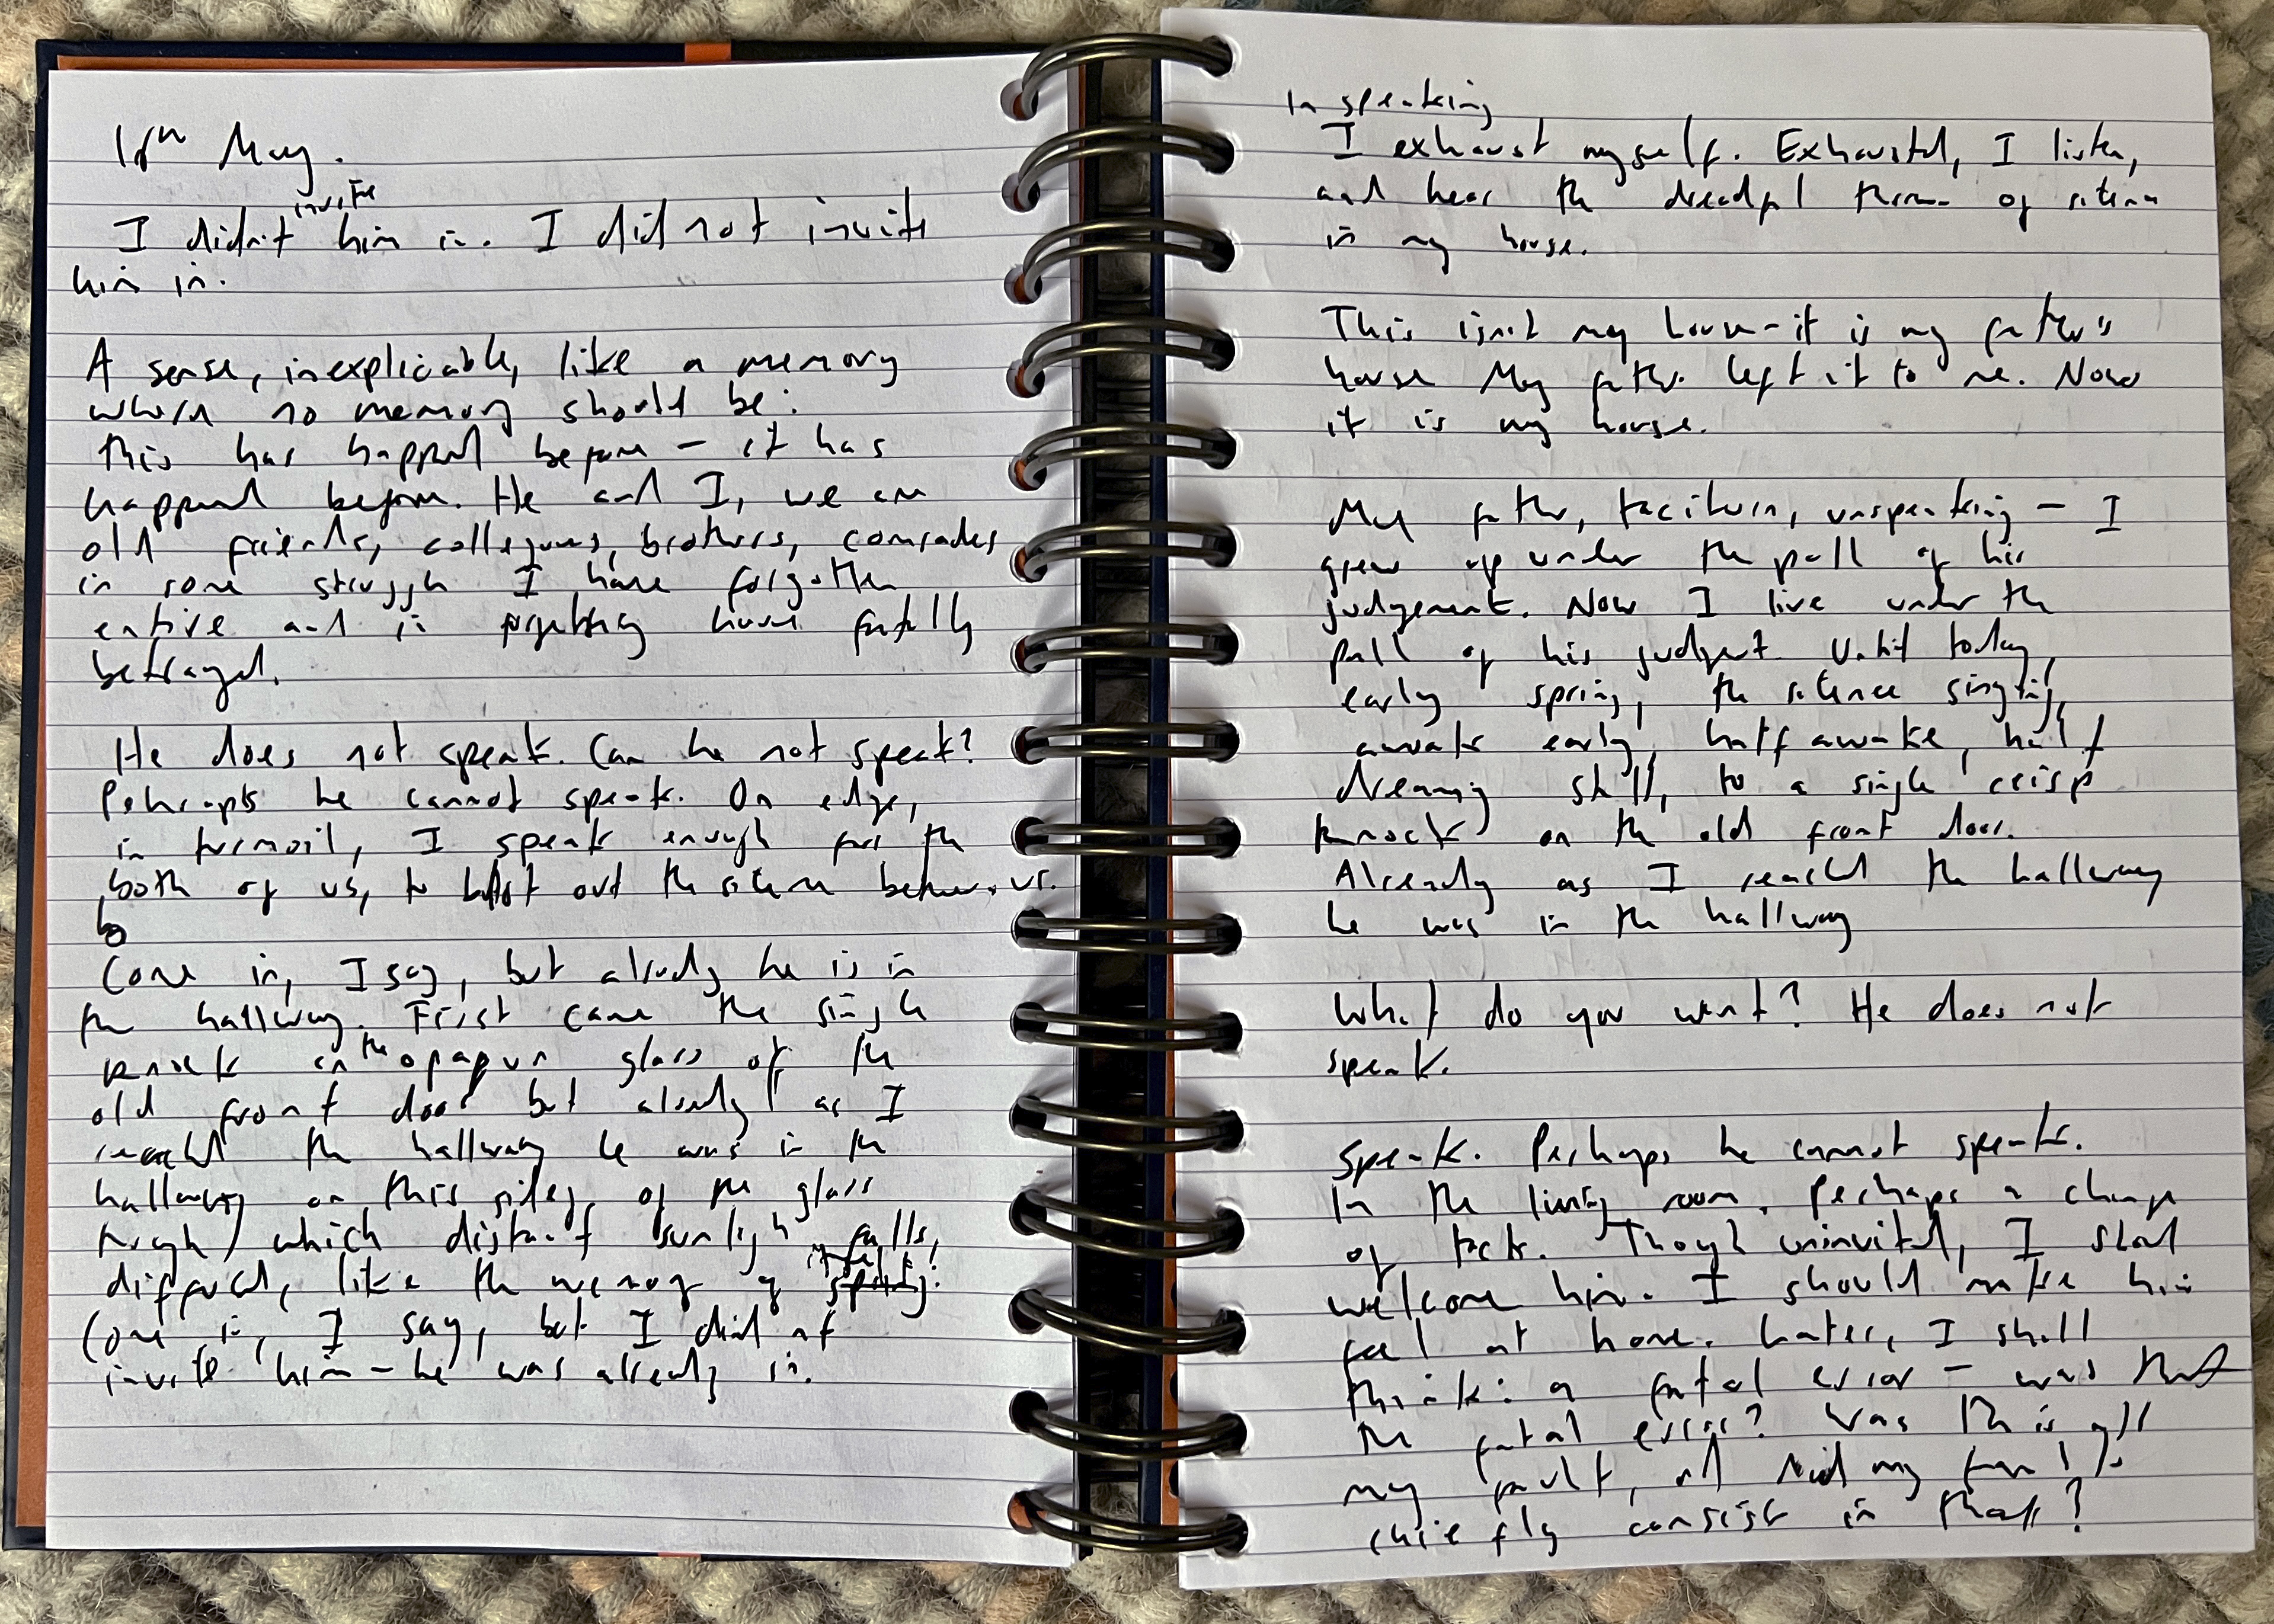 May.
I didn't invite him in. I did not invite
him in.
A sense, inexplicable, like a memory
where no memory should be:
this has happened before – it has
happened before. He and I, we are
old friends, colleagues, brothers, comrades
in some struggle I have forgotten
entire and in forgetting have fatally
betrayed.
He does not speak. Can he not speak?
Perhaps he cannot speak. On edge,
in turmoil, I speak enough for the
both of us, to blot out the silence between us.
b
Come in, I say, but already he is in
the hallway. First came the single
knock on the opaque glass of the
old front door but already as I
reached the hallway he was in the
hallway on this side of the glass
through which distant sunlight falls,
diffused, like the memory of
Come in, I say, but I did not
invite him – he was already in.
In speaking
I exhaust myself. Exhausted, I listen,
and hear the dreadful thrum of silence
in my house.
This isn't my house – it is my father's
house My father left it to me. Now
it is my house.
My father, taciturn, unspeaking – I
grew up under the pall of his
judgement. Now I live under the
pall of his judgement. Until today,
early spring, the silence singing,
awake early, half awake, half
dreaming still, to a single crisp
knock on the old front door.
Already as I reached the hallway
he was in the hallway
What do you want? He does not
speak.
Speak. Perhaps he cannot speak.
In the living room. Perhaps a change
of tack. Though uninvited, I should
welcome him. I should make him
feel at home. Later, I shall
think: a fatal error – was that
the fatal error? Was this all
my fault, and did my fault
chiefly consist in that?